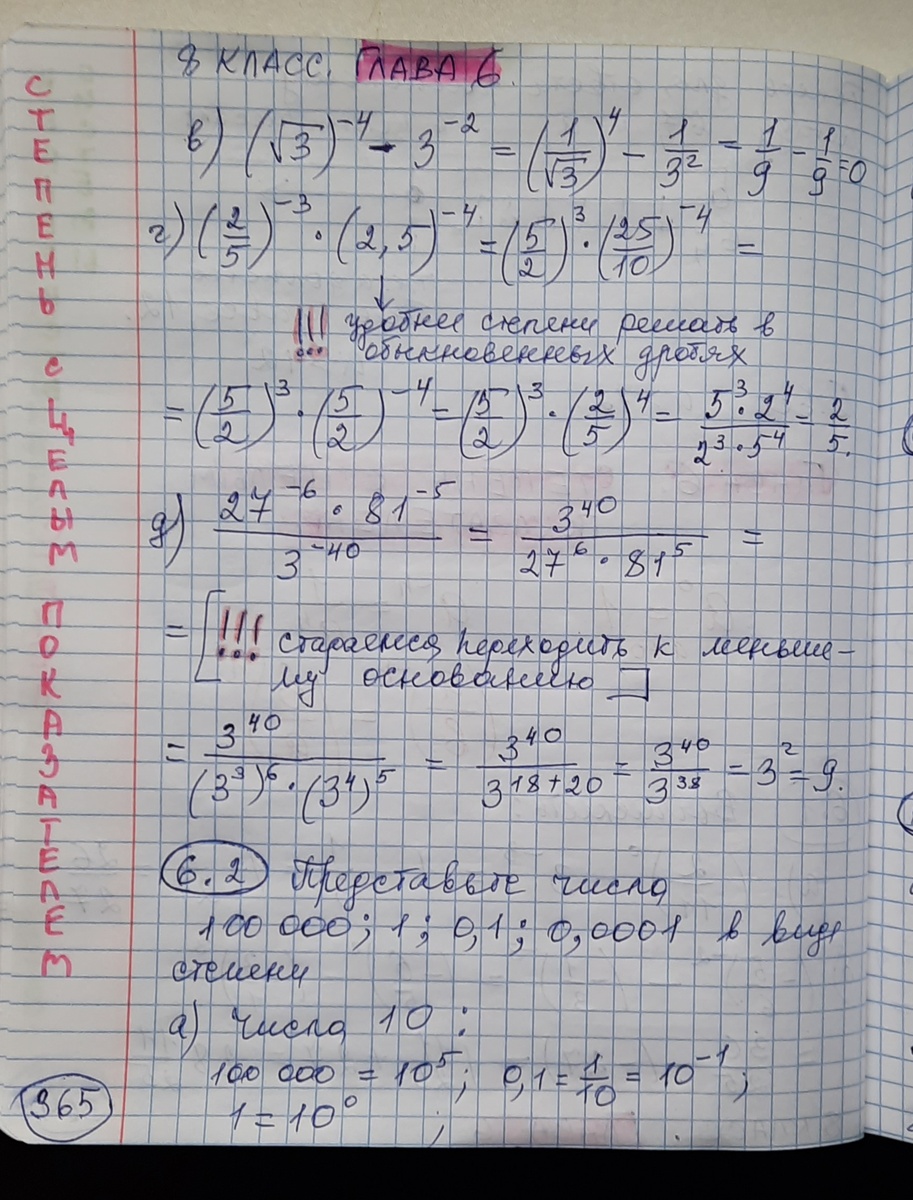 8 КЛАСС. ГЛАВА 6.
СТЕПЕНЬ С ЦЕЛЫМ ПОКАЗАТЕЛЕМ
в) (√3)^-4 - 3^-2 = (1/√3)^4 - 1/3^2 = 1/9 - 1/9 = 0
г) (2/5)^-3 · (2,5)^-4 = (5/2)^3 · (25/10)^-4 =
!!! удобнее степени решать в
обыкновенных дробях
= (5/2)^3 · (5/2)^-4 = (5/2)^3 · (2/5)^4 = 5^3 · 2^4 / 2^3 · 5^4 = 2/5.
д) 27^-6 · 81^-5 / 3^-40 = 3^40 / 27^6 · 81^5 =
= [!!! стараемся переходить к меньше-
му основанию]
= 3^40 / (3^3)^6 · (3^4)^5 = 3^40 / 3^18+20 = 3^40 / 3^38 = 3^2 = 9.
6.2 Представьте числа
100 000; 1; 0,1; 0,0001 в виде
степени
а) числа 10:
100 000 = 10^5; 0,1 = 1/10 = 10^-1;
1 = 10^0 ;
365